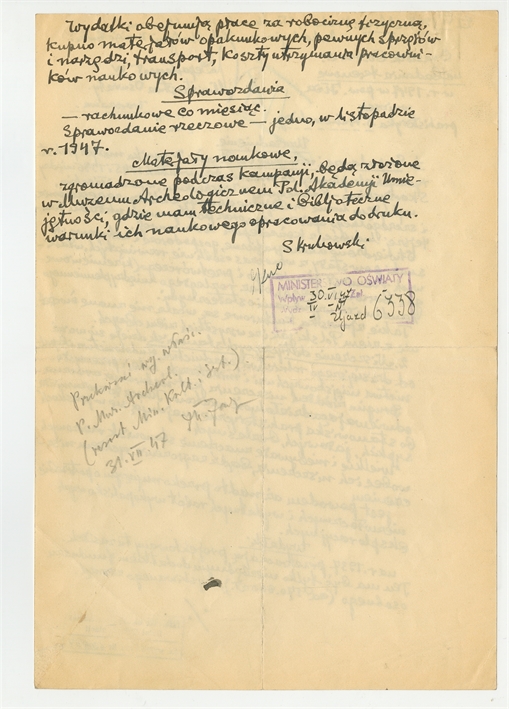 Wydatki obejmują pracę za robociznę fizyczną,
kupno materjałów opakunkowych, pewnych sprzętów
i narzędzi, transport, koszty utrzymania pracowni-
ków naukowych.
Sprawozdania
— rachunkowe co miesiąc.
Sprawozdanie rzeczowe — jedno, w listopadzie
r. 1947.
Materjały naukowe,
zgromadzone podczas kampanji, będą złożone
w Muzeum Archeologicznem Pol. Akademji Umie-
jętności, gdzie mam techniczne i biblioteczne
warunki ich naukowego opracowania do druku.
S Krukowski
MINISTERSTWO OŚWIATY
Wpływ 30.VI.47 Zał.
Wydz. IV
6338
Przekazać wg. właśc.
P. Muz. Archeol.
(resort Min. Kult. i Szt.).
31.VII.47